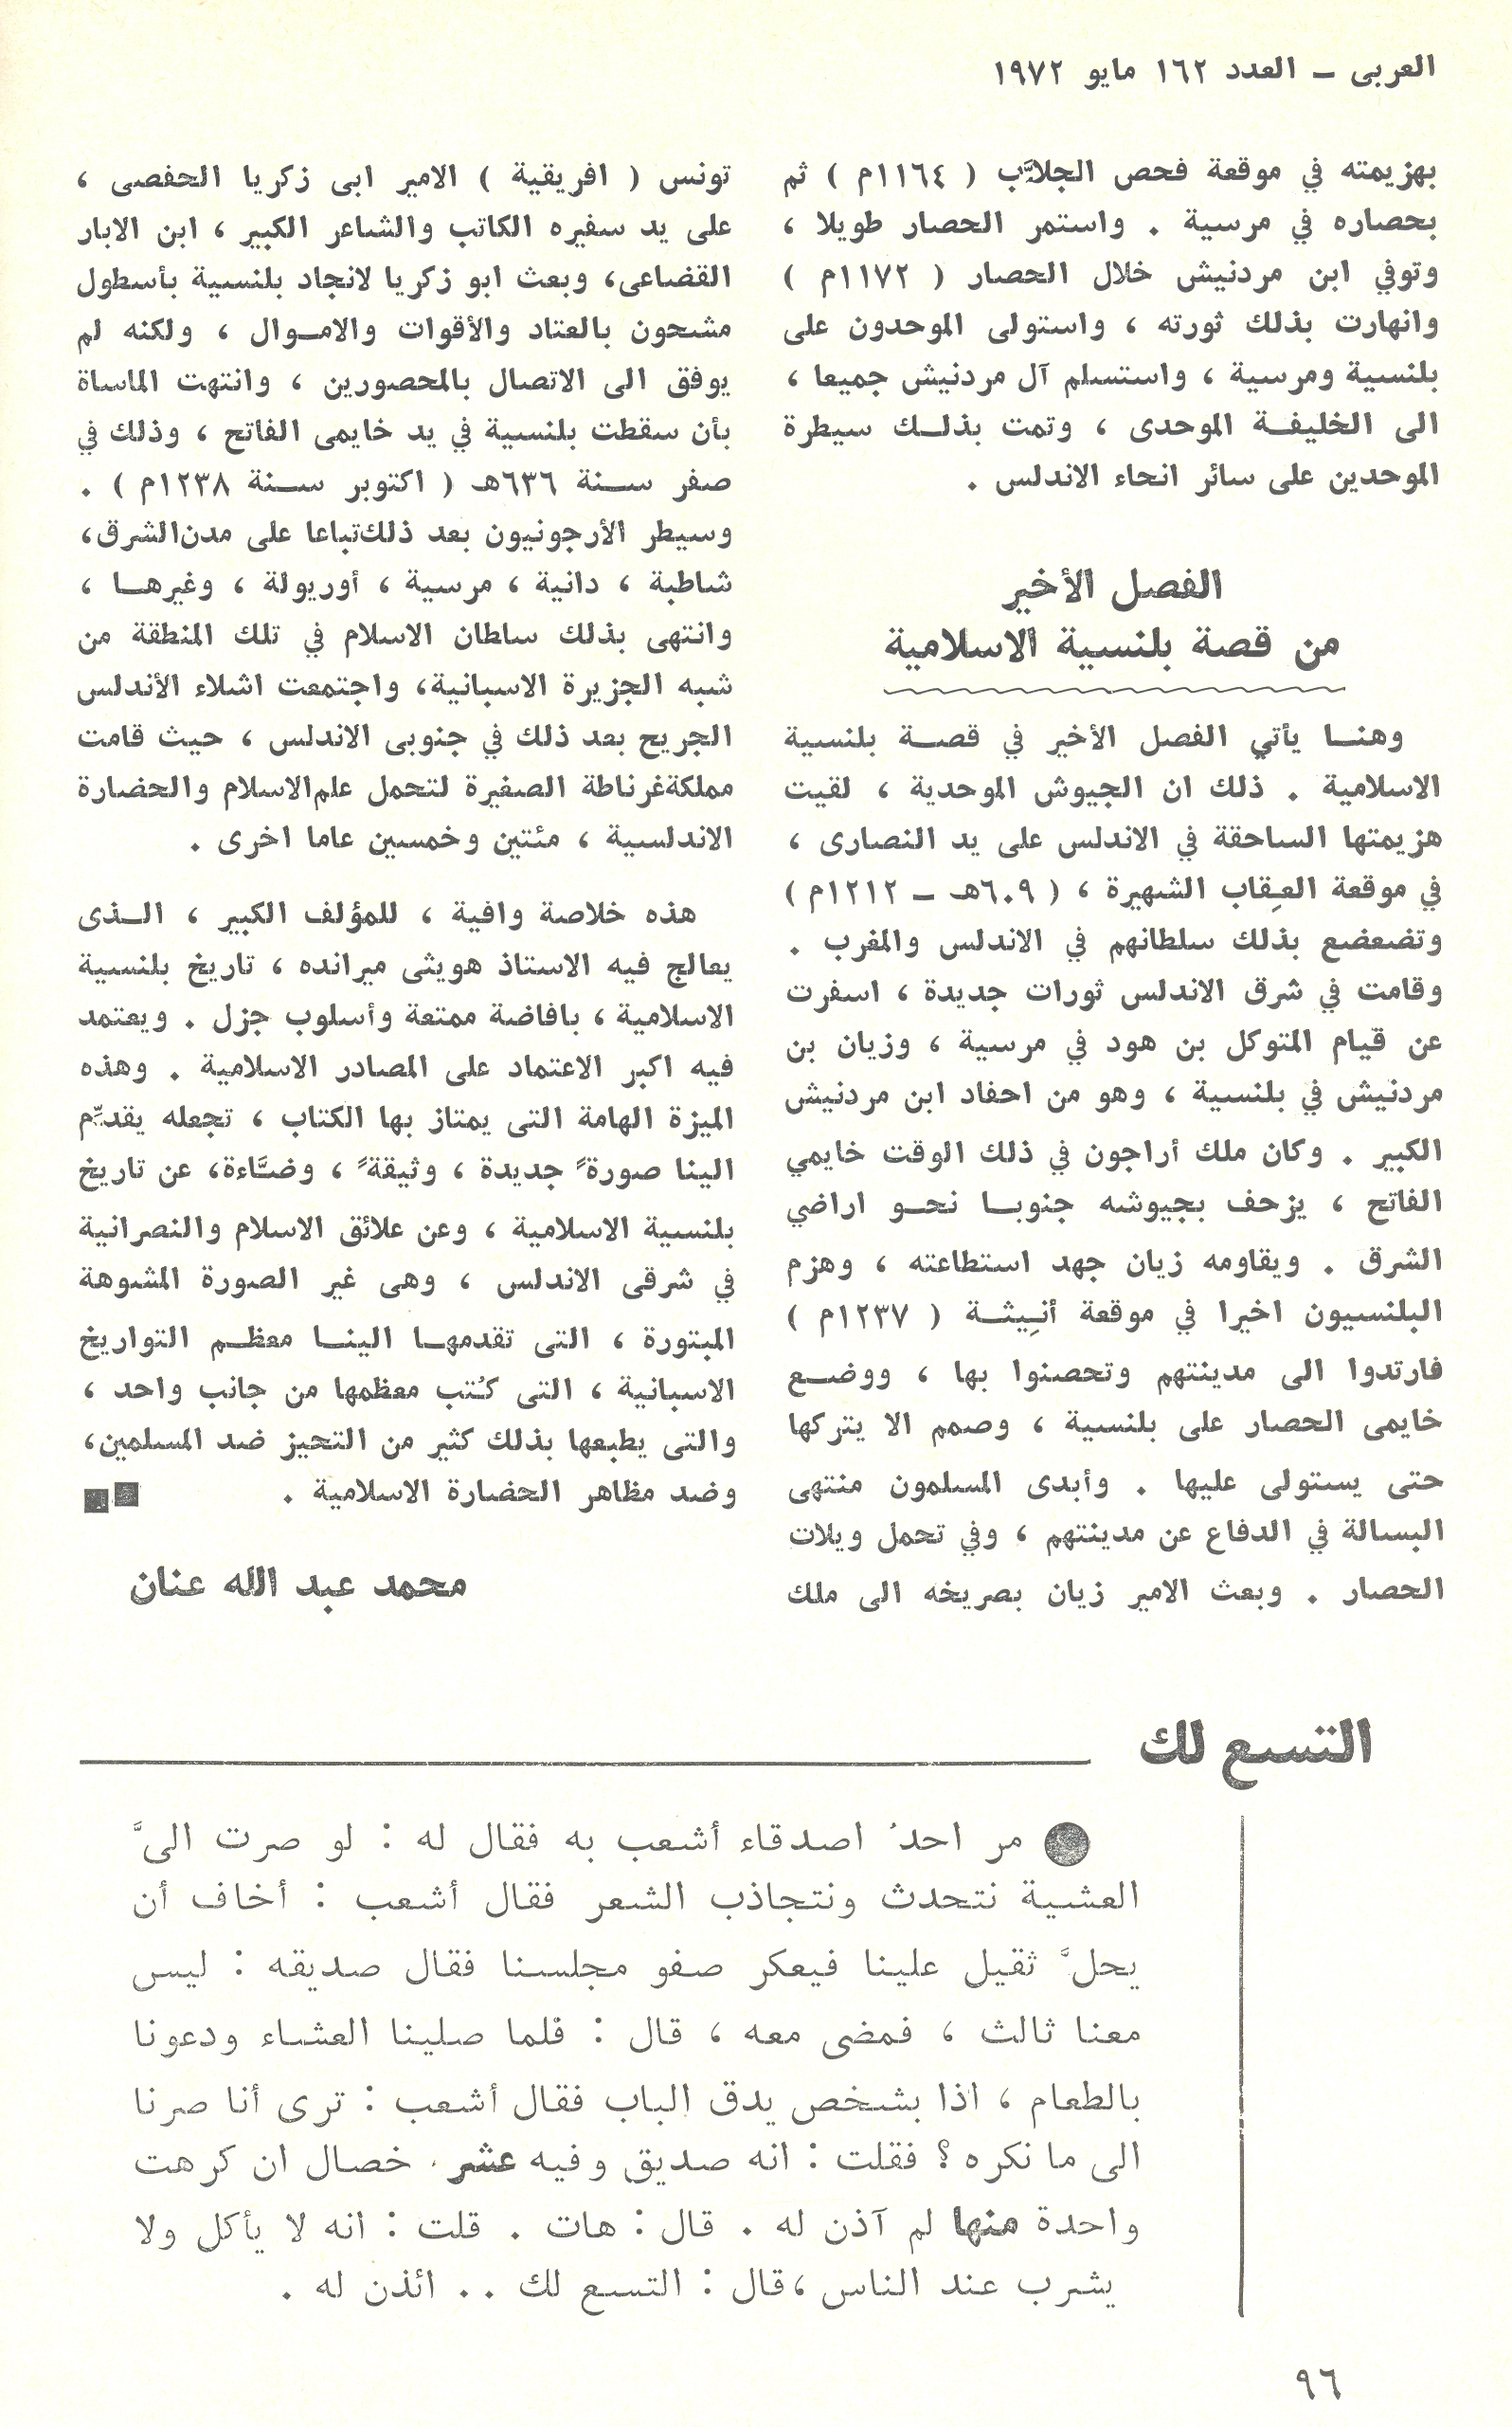 العربى – العدد ١٦٢ مايو ١٩٧٢
بهزيمته في موقعة فحص الجلاَّب ( ١١٦٤م ) ثم
بحصاره في مرسية . واستمر الحصار طويلا ،
وتوفي ابن مردنيش خلال الحصار ( ١١٧٢م )
وانهارت بذلك ثورته ، واستولى الموحدون على
بلنسية ومرسية ، واستسلم آل مردنيش جميعا ،
الى الخليفة الموحدى ، وتمت بذلك سيطرة
الموحدين على سائر انحاء الاندلس .
الفصل الأخير
من قصة بلنسية الاسلامية
وهنا يأتي الفصل الأخير في قصة بلنسية
الاسلامية . ذلك ان الجيوش الموحدية ، لقيت
هزيمتها الساحقة في الاندلس على يد النصارى ،
في موقعة العِقاب الشهيرة ، ( ٦٠٩هـ – ١٢١٢م )
وتضعضع بذلك سلطانهم في الاندلس والمغرب .
وقامت في شرق الاندلس ثورات جديدة ، اسفرت
عن قيام المتوكل بن هود في مرسية ، وزيان بن
مردنيش في بلنسية ، وهو من احفاد ابن مردنيش
الكبير . وكان ملك أراجون في ذلك الوقت خايمي
الفاتح ، يزحف بجيوشه جنوبا نحو اراضي
الشرق . ويقاومه زيان جهد استطاعته ، وهزم
البلنسيون اخيرا في موقعة أنِيشة ( ١٢٣٧م )
فارتدوا الى مدينتهم وتحصنوا بها ، ووضع
خايمى الحصار على بلنسية ، وصمم الا يتركها
حتى يستولى عليها . وأبدى المسلمون منتهى
البسالة في الدفاع عن مدينتهم ، وفي تحمل ويلات
الحصار . وبعث الامير زيان بصريخه الى ملك
تونس ( افريقية ) الامير ابى زكريا الحفصى ،
على يد سفيره الكاتب والشاعر الكبير ، ابن الابار
القضاعى، وبعث ابو زكريا لانجاد بلنسية بأسطول
مشحون بالعتاد والأقوات والاموال ، ولكنه لم
يوفق الى الاتصال بالمحصورين ، وانتهت الماساة
بأن سقطت بلنسية في يد خايمى الفاتح ، وذلك في
صفر سنة ٦٣٦هـ ( اكتوبر سنة ١٢٣٨م ) .
وسيطر الأرجونيون بعد ذلك تباعا على مدن الشرق،
شاطبة ، دانية ، مرسية ، أوريولة ، وغيرها ،
وانتهى بذلك سلطان الاسلام في تلك المنطقة من
شبه الجزيرة الاسبانية، واجتمعت اشلاء الأندلس
الجريح بعد ذلك في جنوبى الاندلس ، حيث قامت
مملكة غرناطة الصغيرة لتحمل علم الاسلام والحضارة
الاندلسية ، مئتين وخمسين عاما اخرى .
هذه خلاصة وافية ، للمؤلف الكبير ، الذى
يعالج فيه الاستاذ هويثى ميرانده ، تاريخ بلنسية
الاسلامية ، بافاضة ممتعة وأسلوب جزل . ويعتمد
فيه اكبر الاعتماد على المصادر الاسلامية . وهذه
الميزة الهامة التى يمتاز بها الكتاب ، تجعله يقدِّم
الينا صورةً جديدة ، وثيقةً ، وضَّاءة، عن تاريخ
بلنسية الاسلامية ، وعن علائق الاسلام والنصرانية
في شرقى الاندلس ، وهى غير الصورة المشوهة
المبتورة ، التى تقدمها الينا معظم التواريخ
الاسبانية ، التى كُتب معظمها من جانب واحد ،
والتى يطبعها بذلك كثير من التحيز ضد المسلمين،
وضد مظاهر الحضارة الاسلامية .
محمد عبد الله عنان
التسع لك
مر احدُ اصدقاء أشعب به فقال له : لو صرت الىَّ
العشية نتحدث ونتجاذب الشعر فقال أشعب : أخاف أن
يحلَّ ثقيل علينا فيعكر صفو مجلسنا فقال صديقه : ليس
معنا ثالث ، فمضى معه ، قال : فلما صلينا العشاء ودعونا
بالطعام ، اذا بشخص يدق الباب فقال أشعب : ترى أنا صرنا
الى ما نكره ؟ فقلت : انه صديق وفيه عشر خصال ان كرهت
واحدة منها لم آذن له . قال : هات . قلت : انه لا يأكل ولا
يشرب عند الناس ، قال : التسع لك . . ائذن له .
٩٦